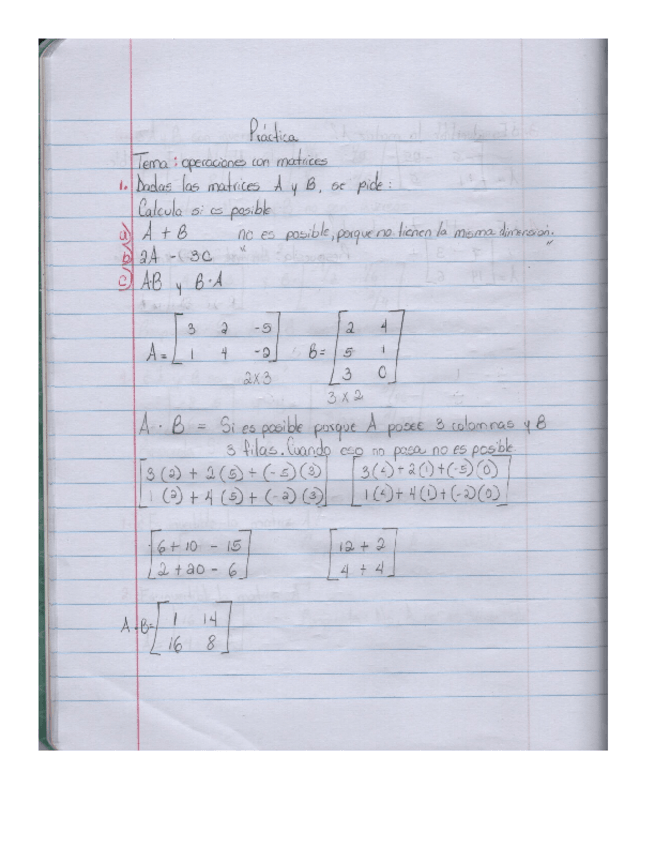 Práctica
Tema: operaciones con matrices
1. Dadas las matrices A y B, se pide:
Calcula si es posible
a) A + B no es posible, porque no tienen la misma dimensión.
b) 2A - 3C
c) AB y B·A
A = [ 3 2 -5
1 4 -2 ] B = [ 2 4
5 1
3 0 ]
2x3
3 x 2
A · B = Si es posible porque A posee 3 columnas y B
3 filas. Cuando eso no pasa no es posible
[ 3(2) + 2(5) + (-5)(3) [ 3(4) + 2(1) + (-5)(0)
1(2) + 4(5) + (-2)(3) ] 1(4) + 4(1) + (-2)(0) ]
[ 6 + 10 - 15 [ 12 + 2
2 + 20 - 6 ] 4 + 4 ]
A·B = [ 1 14
16 8 ]